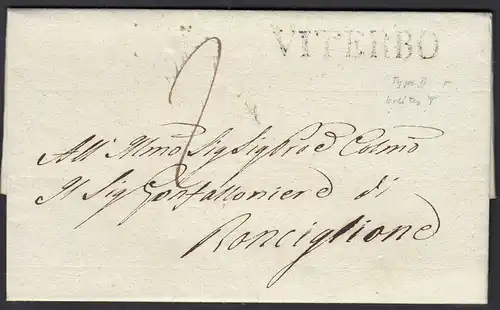 VITERBO
2
Type B
breites T
All' Illmo Sig Sig Pro e Colmo
Il Sig Gonfaloniere di
Ronciglione